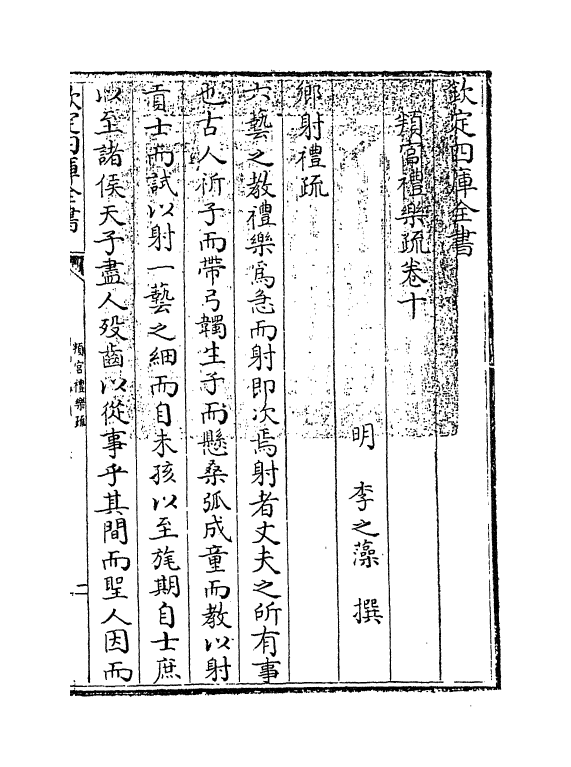 欽定四庫全書
頖宮禮樂疏卷十
明 李之藻 撰
鄉射禮疏
六藝之教禮樂爲急而射即次焉射者丈夫之所有事
也古人祈子而帶弓韣生子而懸桑弧成童而教以射
貢士而試以射一藝之細而自未孩以至旄期自士庶
以至諸侯天子盡人歿齒以從事乎其間而聖人因而
欽定四庫全書
頖宮禮樂疏